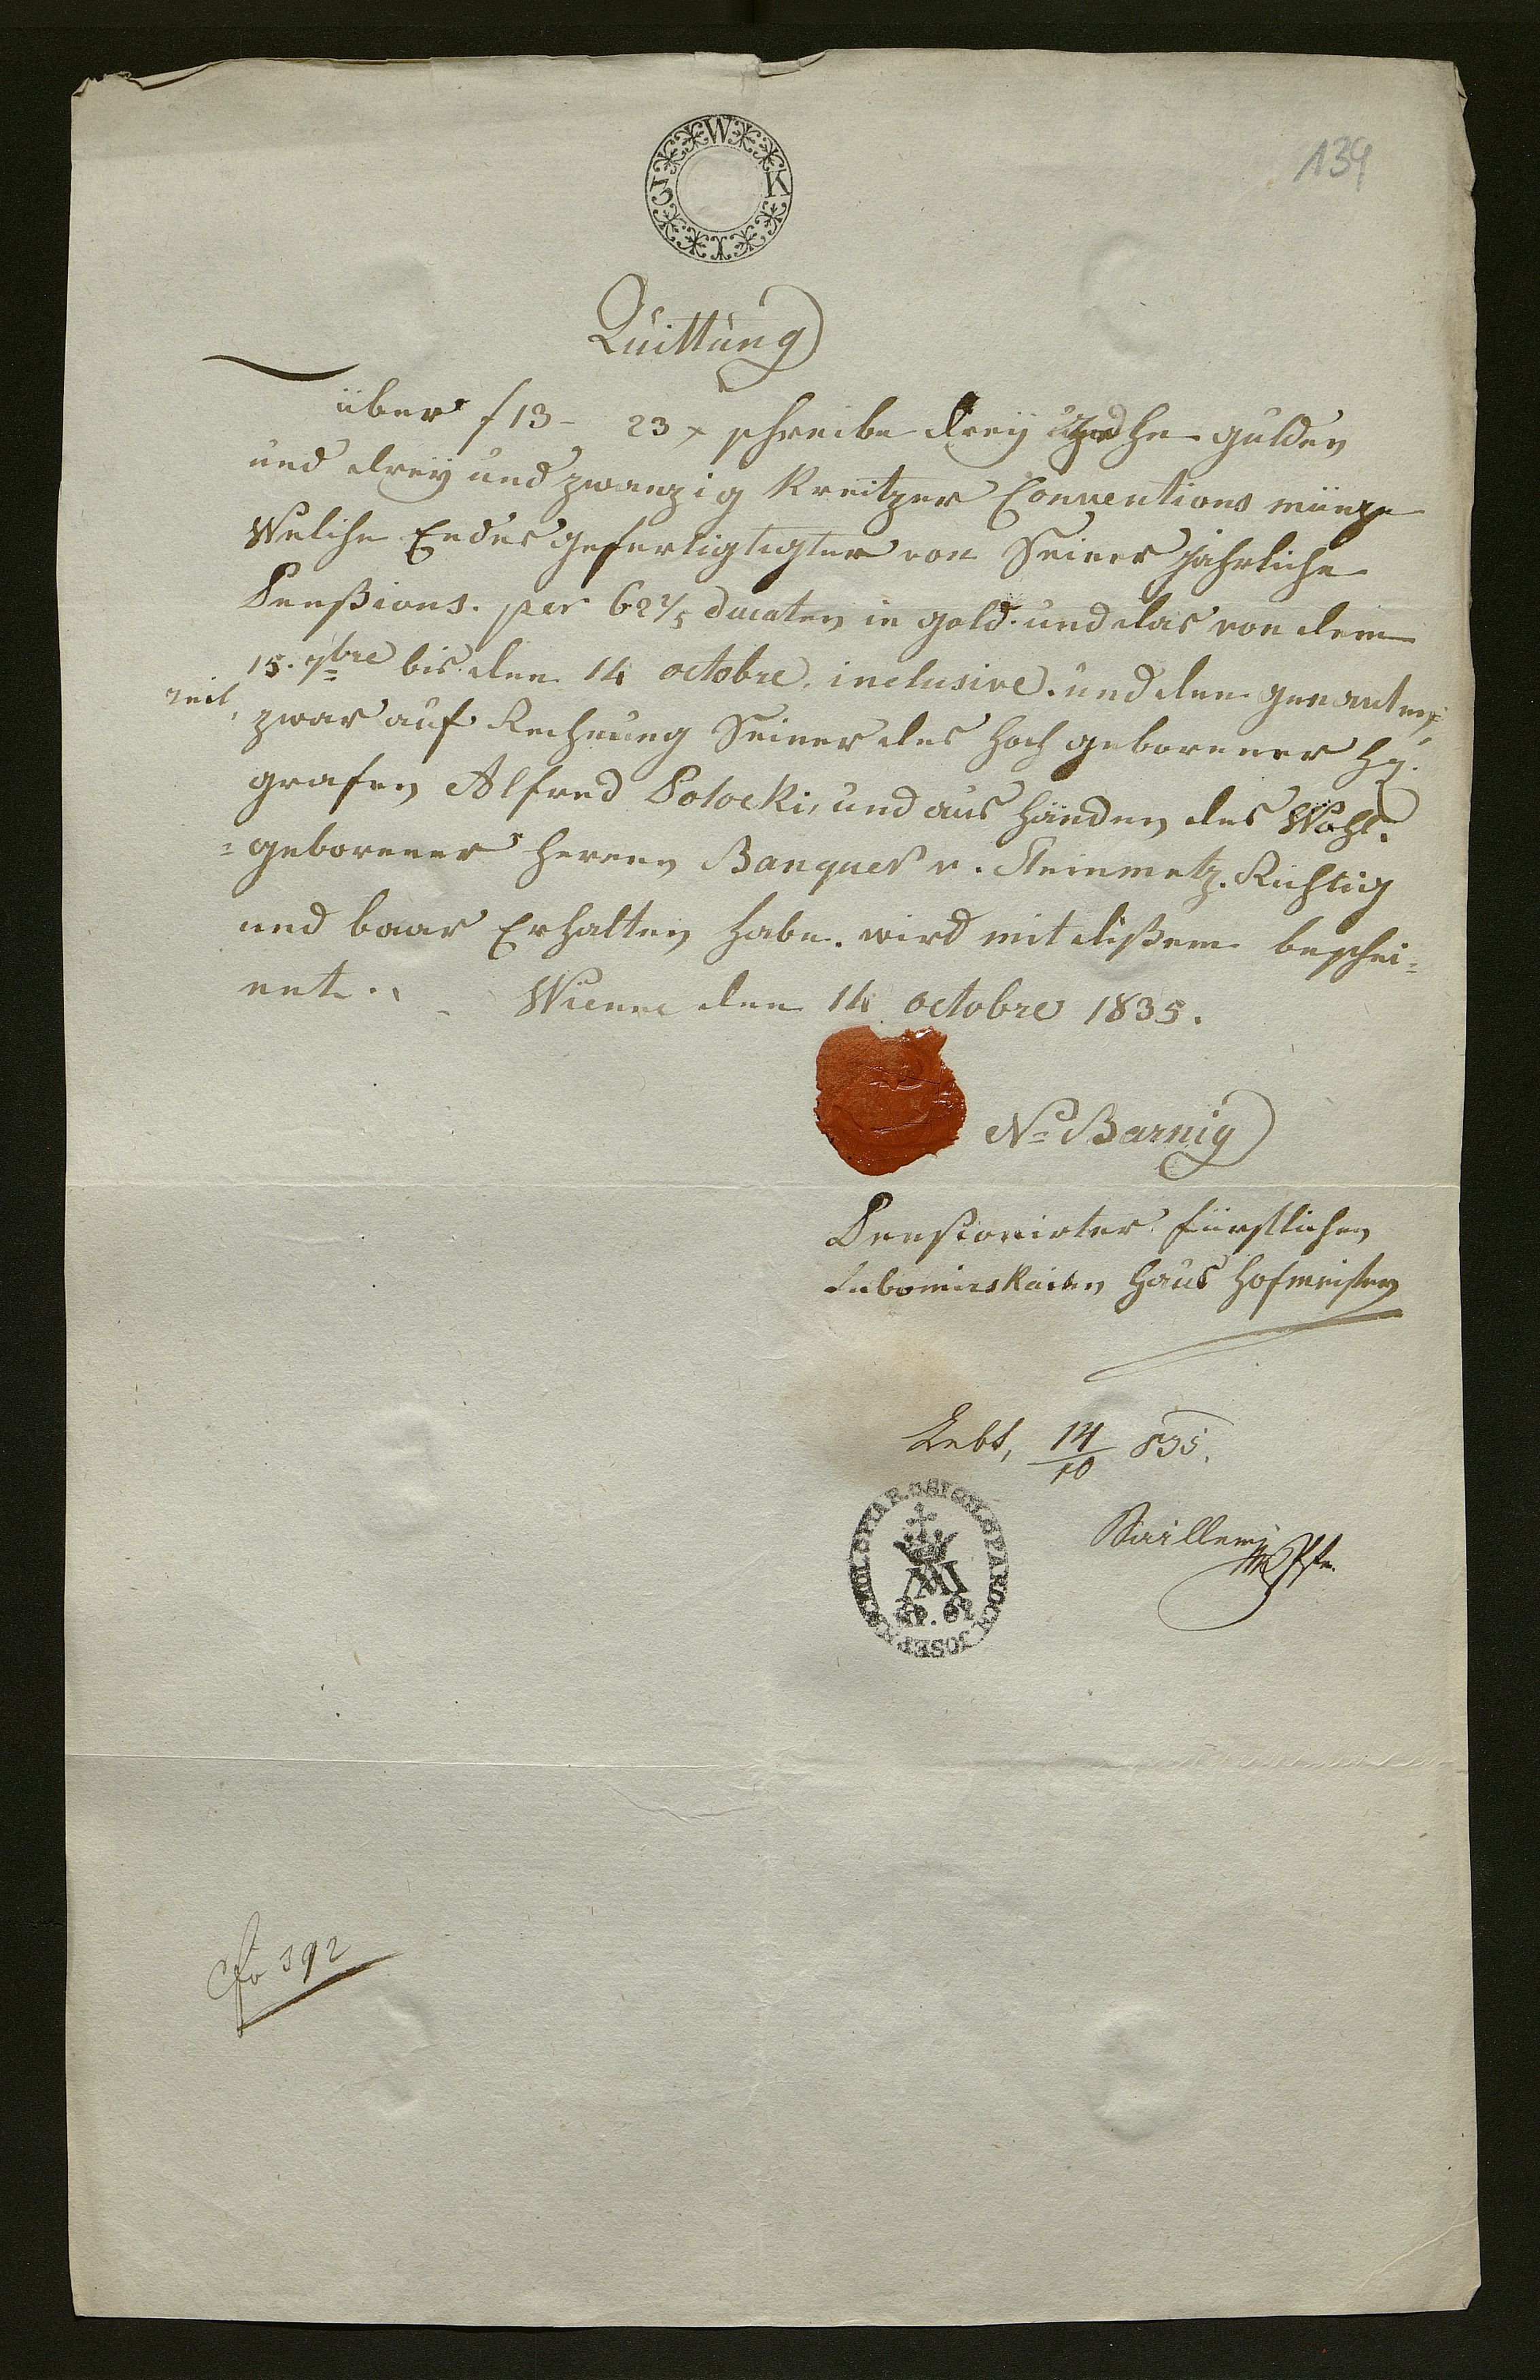 139
3 W K I
Quittung
über f 13 - 23 x schreibe drey zehe gulden
und dreÿ und zwanzig Kreitzer Conventions münze
Welche Endes gefertigtigter von Seiner jährliche
Penßions. per 62 2/5 ducaten in gold. und das von dem
15. 7bre bis den 14 octobre, inclusive. und den genanten
zeit, zwar auf Rechnung Seiner des Hoch geborener H:
grafen Alfred Potocki, und aus Händen des Wohl=
=geborener Herren Banquer v. Steinmetz. Richtig
und baar Erhalten habe. wird mit dißem beschei=
net.
Wienne den 14 octobre 1835.
N= Barnig
Pensionirter fürstlichen
Lubomirskischen Haus Hofmeister
Lebt, 14/10 835.
JOSEPH
Fo 392